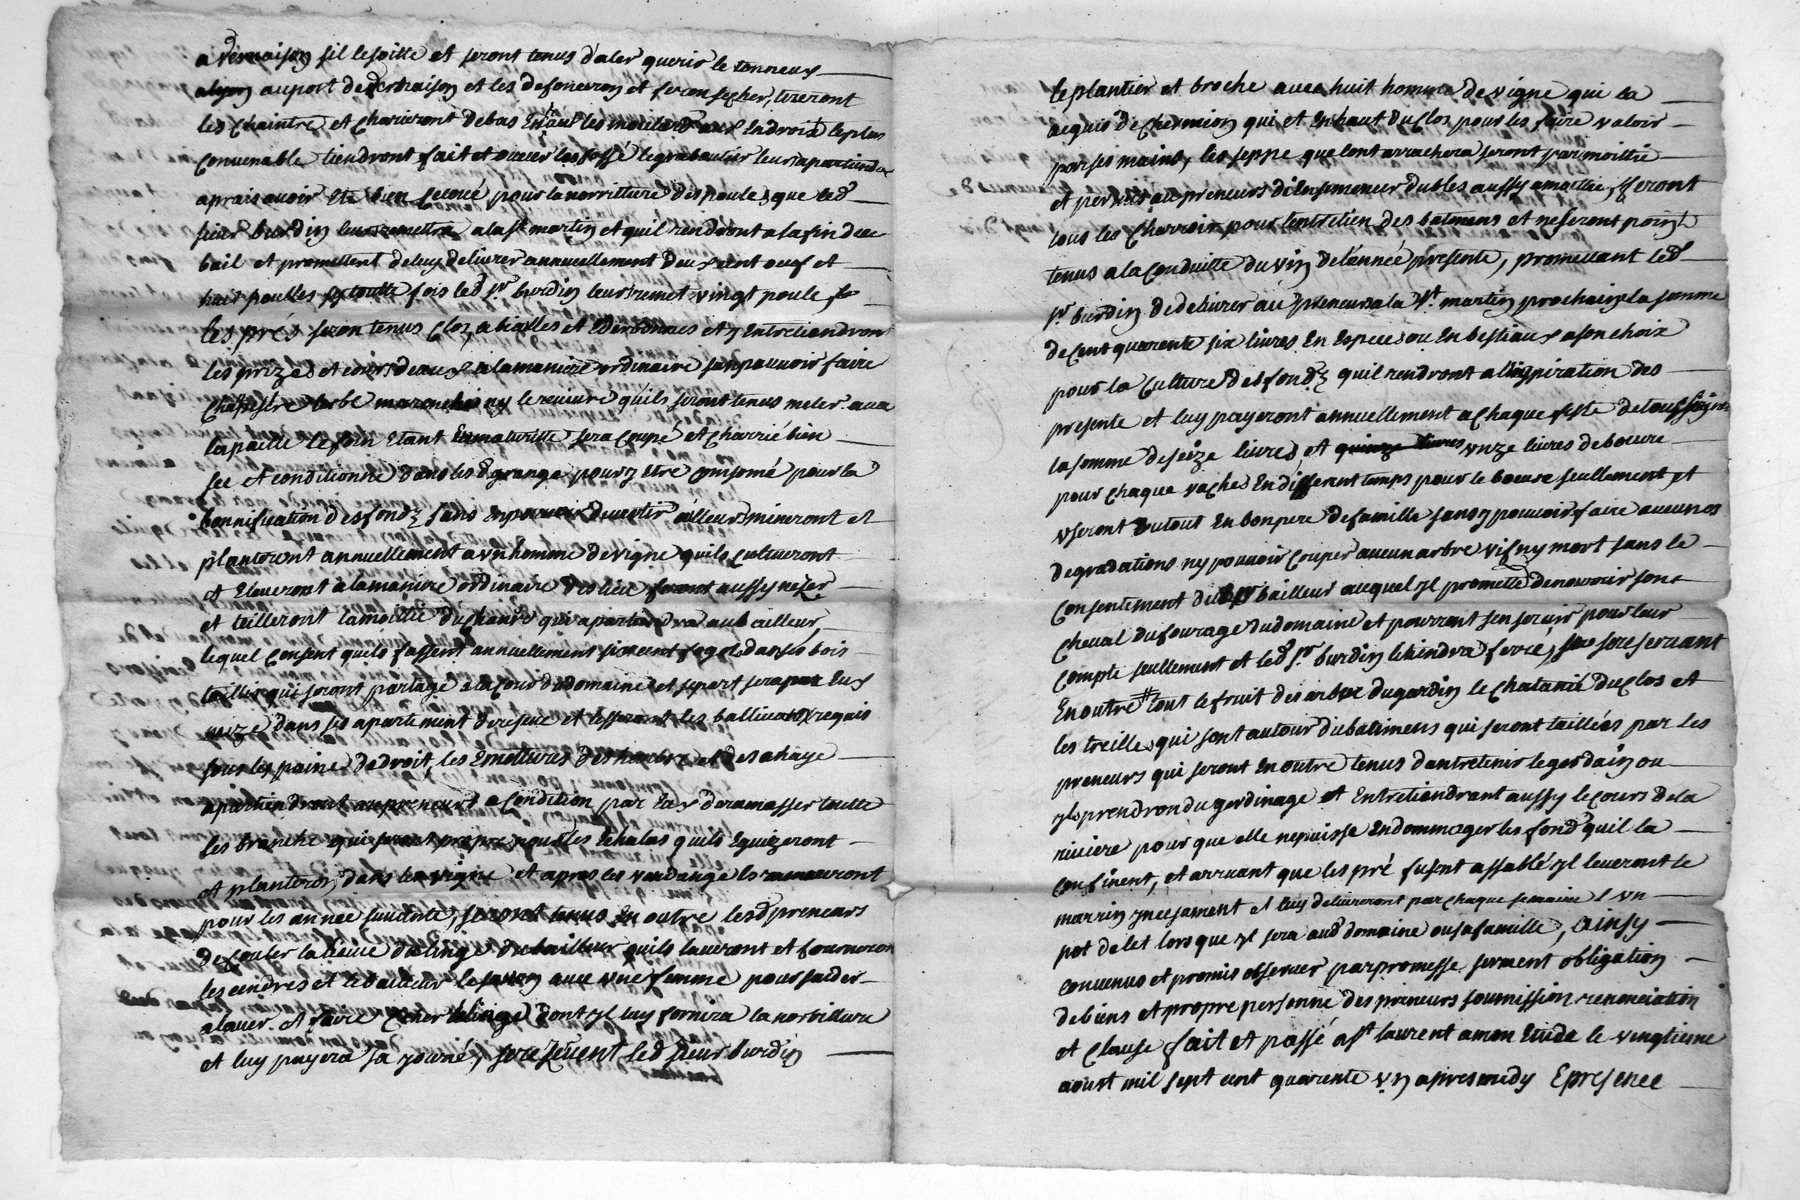 a vernaison sil lesoitte et seront tenus d'aler querir le tonneux
alyon auport de vernaison et les defonceron et feron secher, tireront
les chaintre et charieront debas en aut les mouland aux endroit leplus
convenable tiendront fait et les fossé legrabautier leur apartiendra
aprais avoir ete bien secoué pour la norriture des poules que led
sieur burdin leur remettra a la st martin et quil rendront a la fin dece
bail et promettent deluy delivrer annuellement deux cent oeuf et
huit poulles toutte fois led sr burdin leur remet vingt poule
les prés seron tenus cloz et y entretiendront
les prizes et cours deaux a la maniere ordinaire sanpouvoir faire
ny le revivre quils seront tenus meler avec
la paille le foin etant enmaturitte sera coupé et charrié bien
sec et conditionné dans les d grange pour y etre consomé pour la
bonnification des fondz sans enpouvoir divertir allieurs mineront et
planteront annuellement a vn homme de vigne quils cultiveront
et eleveront a la maniere ordinaire des lieu feront aussy
et teilleront la moitié du chanvre qui apartiendra au bailleur
lequel consent quils fassent annuellement sixcent fagot dans les bois
taillis qui seront partagé a la cour du domaine et separt sera par eux
mize dans ses apartement dereserve et lesseront les balliveaux requis
sous les paine dedroit, les emottures des harbre et des ahaye
apartiendront aux preneurs a condition par eux deramasser toutte
les branche qui seront propre pour les echalas quils eguizeront
et planteron dans les vigne et apres les vendange les rameneront
pour les année suivante, seront tenus en outre lesd preneurs
de couler la lisive du linge du bailleur quils laveront et fourniron
les cendres et le bailleur le savon avec vne femme pour saider
a laver et faire secher le linge dont yl luy fornira la norriture
et luy payera sa journé, sereservent led sieur burdin
le plantier et broche avec huit homme de vigne qui la
aquis de chermion qui et en haut du clos pour les faire valoir
par ses mains, les seppe que lont arrachera seront par moittié
et permis au preneurs di ensemencer dubles aussy amoitié, feront
tous les charroir pour lentretien des batimens et neseront point
tenus a la conduitte du vin de lannée présente, promettant led
sr burdin de delivrer au preneurs a la st martin prochain la somme
de cent quarente six livres en especes ou en bestiaux a son choix
pour la culture des fondz quil rendront a linspiration des
presente et luy payeront annuellement a chaque feste de toussaint
la somme de seize livres et quinze livres vnze livres de boeure
pour chaque vaches en different temps pour le boeure seullement et
vseront dutout en bon pere de famille sans y pouvoir faire aucunes
degradations ny pouvoir couper aucun arbre vif ny mort sans le
consentement dud sr bailleur auquel yl promette denourir son
cheval du fourage du domaine et pourront sen servir pour leur
compte seullement et led sr burdin letiendra ferré, se reservant
en outre # tout le fruit des arbre dugardin le chatanié duclos et
les treilles qui sont autour du batimens qui seront taillées par les
preneurs qui seront en outre tenus dantretenir le gardain ou
yls prendron du gardinage et entretiendrant aussy le cours de la
riviere pour que elle nepuisse endommager les fond quil la
confinent, et arrivant que les pré fusent assablé yl leveront le
marrin yncesament et luy delivreront par chaque semaine l vn
pot de let lors que yl sera aud domaine ou sa famille, ainsy
convenus et promis observer par promesse serment obligation
de biens et propre personne des preneurs soumission renonciation
et clause fait et passé a st laurent a mon etude le vingtieme
aoust mil sept cent quarente vn apresmidy e presence